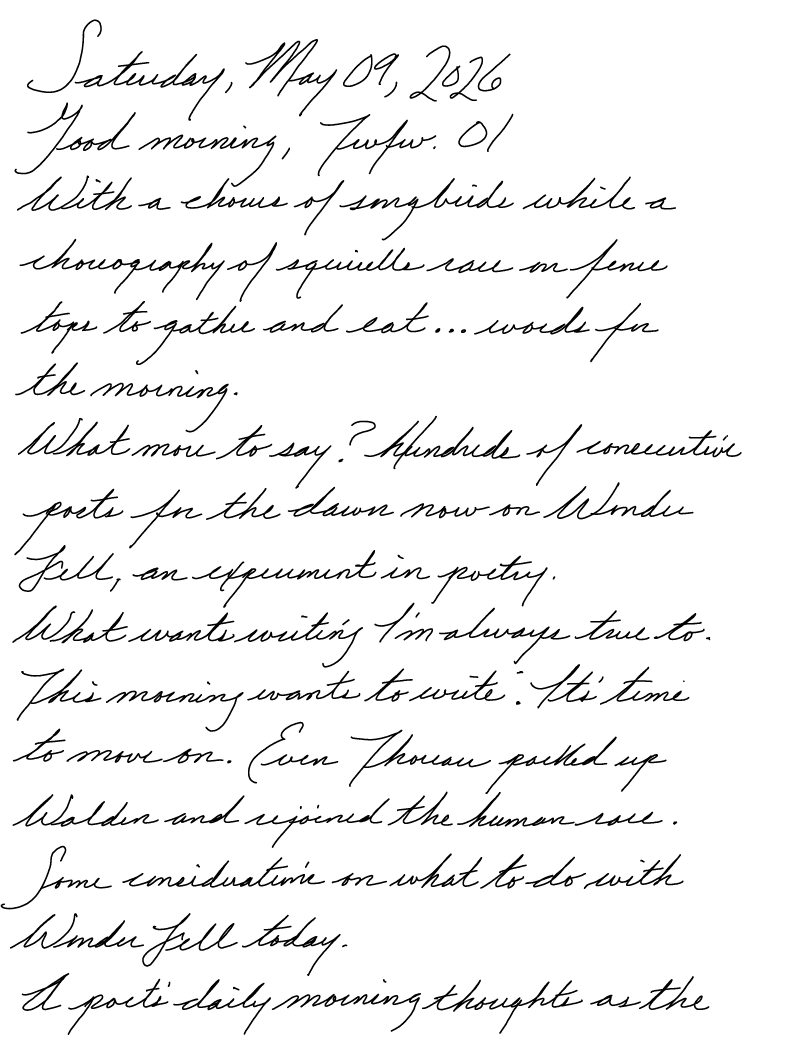 Saturday, May 09, 2026
Good morning, Twfw. 01
With a chorus of songbirds while a
choreography of squirrells race on fence
tops to gather and eat... words for
the morning.
What more to say? Hundreds of consecutive
poets for the dawn now on Wonder
Fell, an experiment in poetry.
What wants writing I'm always true to.
This morning wants to write: It's time
to move on. Even Thoreau packed up
Walden and rejoined the human race.
Some considerations on what to do with
Wonder Fell today.
A poet's daily morning thoughts as the